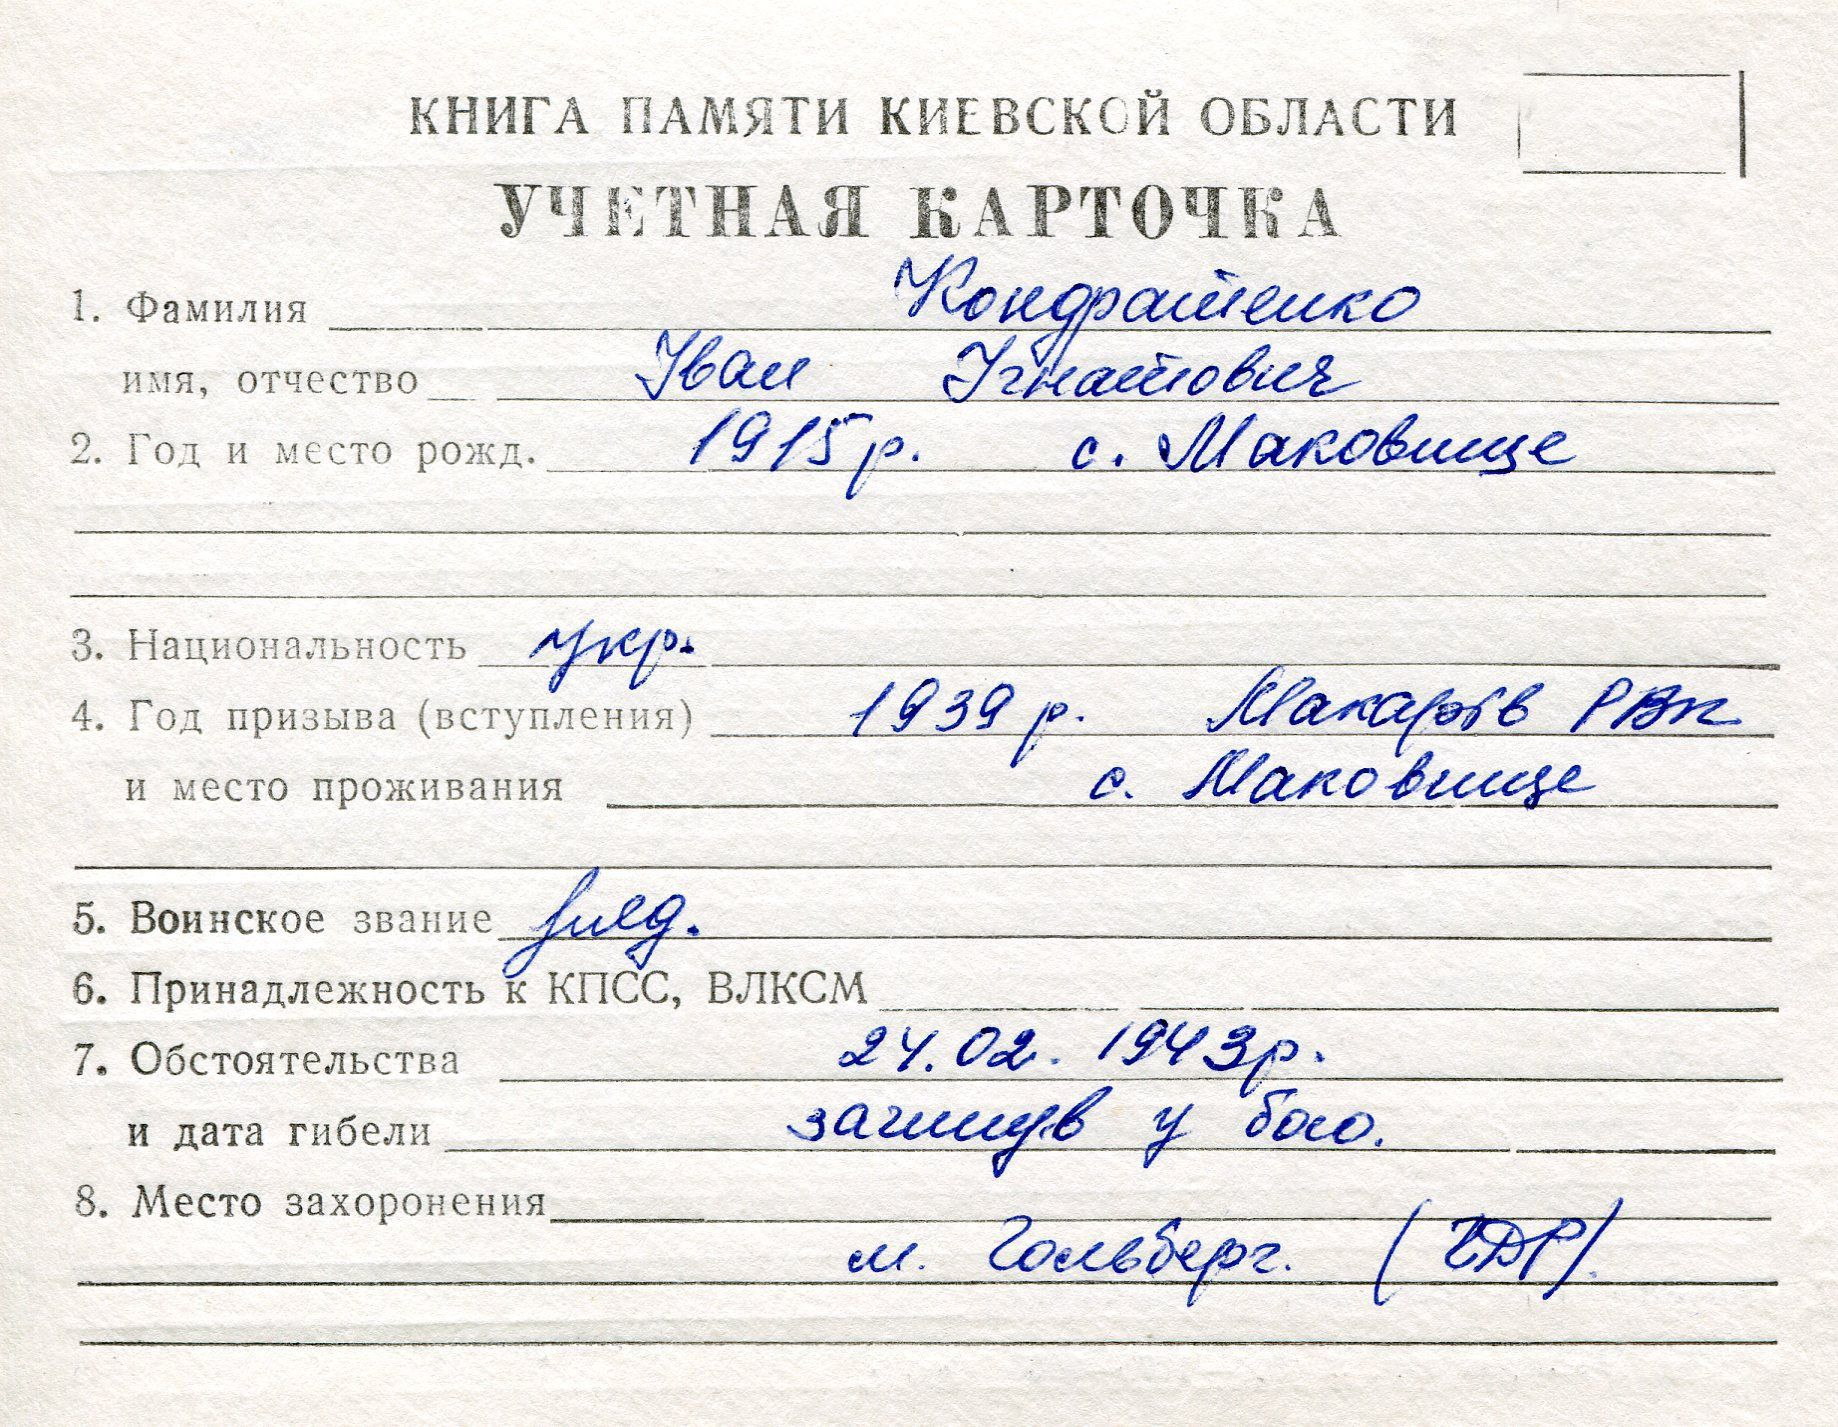 КНИГА ПАМЯТИ КИЕВСКОЙ ОБЛАСТИ
УЧЕТНАЯ КАРТОЧКА
1. Фамилия Кондратенко
имя, отчество Іван Ігнатович
2. Год и место рожд. 1915 р. с. Маковище
3. Национальность укр.
4. Год призыва (вступления) 1939 р. Макарів РВК
и место проживания с. Маковище
5. Воинское звание
6. Принадлежность к КПСС, ВЛКСМ
7. Обстоятельства 24.02.1943р.
и дата гибели загинув у бою.
8. Место захоронения
м. Гольберг. (НДР).